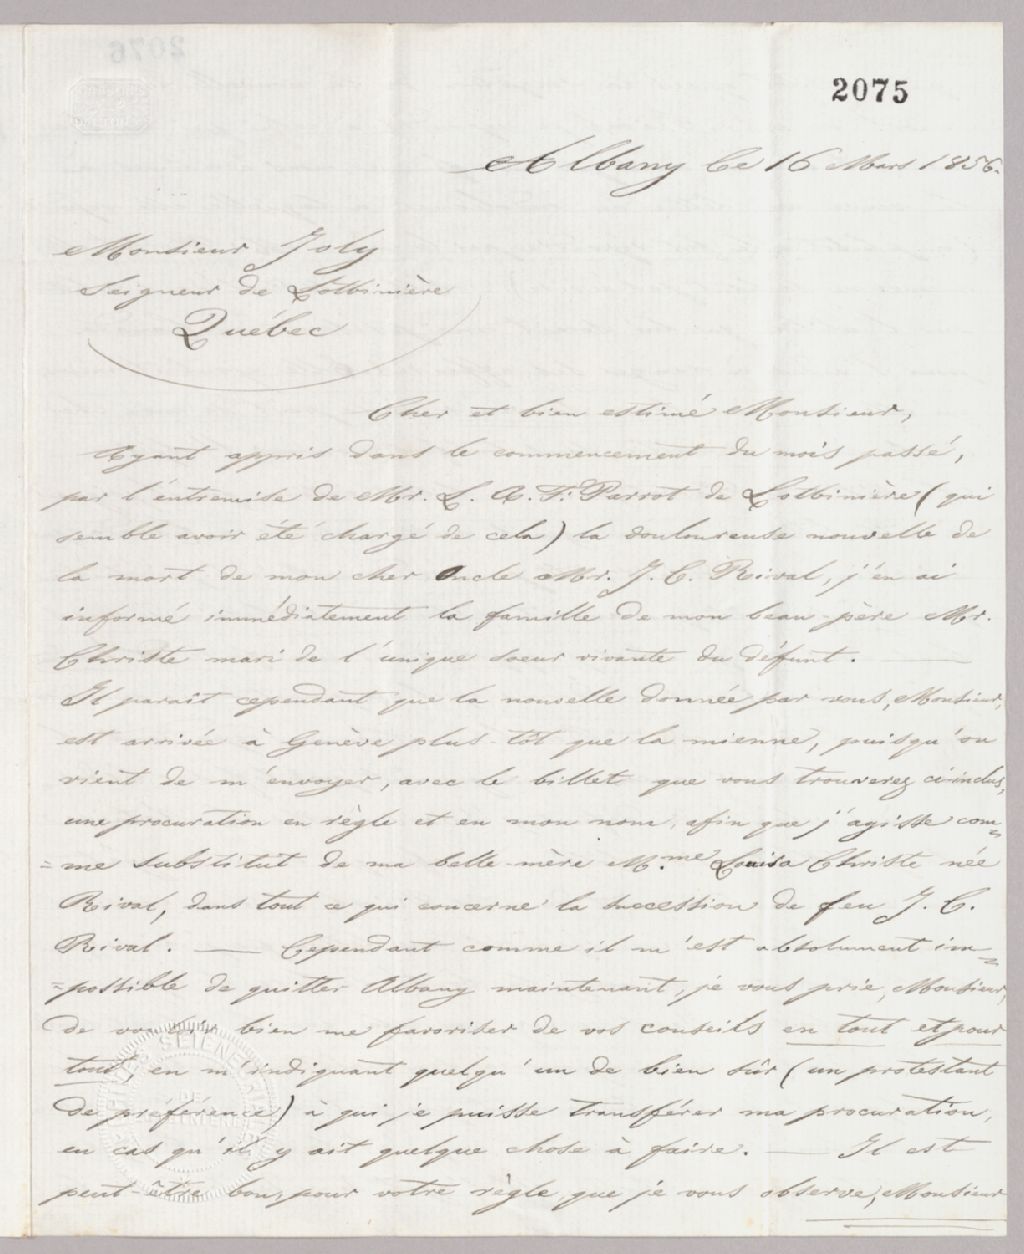 2075
Albany le 16 Mars 1856.
Monsieur Joly
Seigneur de Lotbinière
Québec
Cher et bien estimé Monsieur,
Ayant appris dans le commencement du mois passé,
par l'entremise de Mr. L. A. F. Parrot de Lotbinière (qui
semble avoir été chargé de cela) la douloureuse nouvelle de
la mort de mon cher Oncle Mr. J. C. Rival, j'en ai
informé immédiatement la famille de mon beau-père Mr.
Christe mari de l'unique soeur vivante du défunt. —
Il parait cependant que la nouvelle donnée par vous, Monsieur,
est arrivée à Genève plus-tôt que la mienne, puisqu'on
vient de m'envoyer, avec le billet que vous trouverez ci-inclus,
une procuration en règle et en mon nom, afin que j'agisse com=
=me substitut de ma belle-mère M.me Louisa Christe née
Rival, dans tout ce qui concerne la succession de feu J. C.
Rival. — Cependant comme il m'est absolument im=
=possible de quitter Albany maintenant, je vous prie, Monsieur,
de vouloir bien me favoriser de vos conseils en tout et pour
tout, en m'indiquant quelqu'un de bien sûr (un protestant
de préférence) à qui je puisse transférer ma procuration,
en cas qu'il y ait quelque chose à faire. — Il est
peut-être bon, pour votre règle, que je vous observe, Monsieur